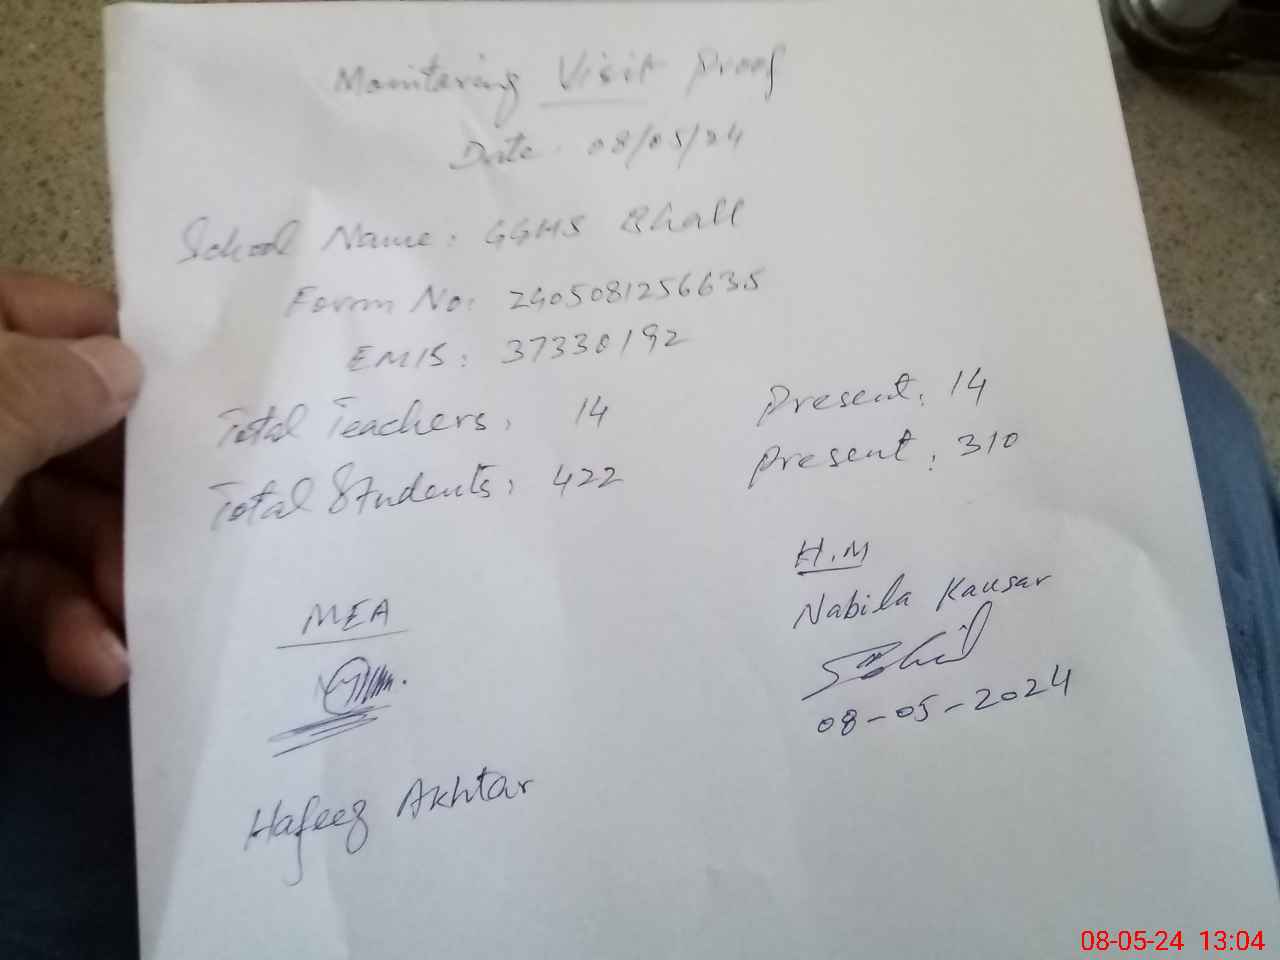 Monitoring Visit Proof
Date: 08/05/24
School Name: GGHS Bhall
Form No: 2405081256635
EMIS: 37330192
Total Teachers: 14 Present: 14
Total Students: 422 Present: 310
H.M
MEA
Nabila Kausar
08-05-2024
Hafeez Akhtar
08-05-24 13:04